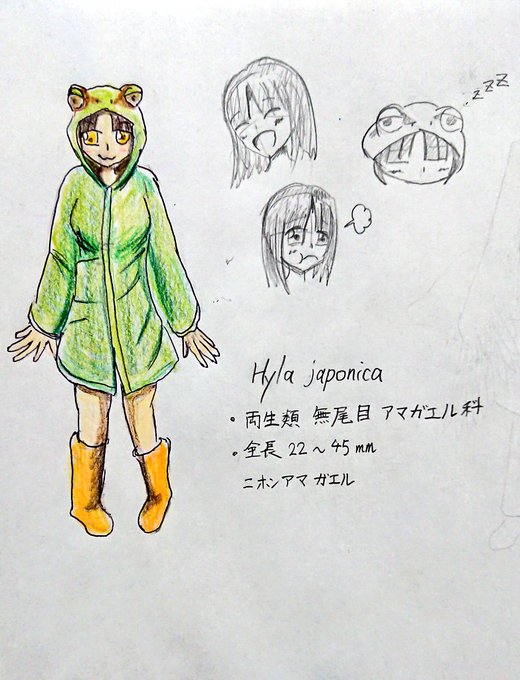 zzz
Hyla japonica
・両生類 無尾目 アマガエル科
・全長 22～45mm
ニホンアマガエル